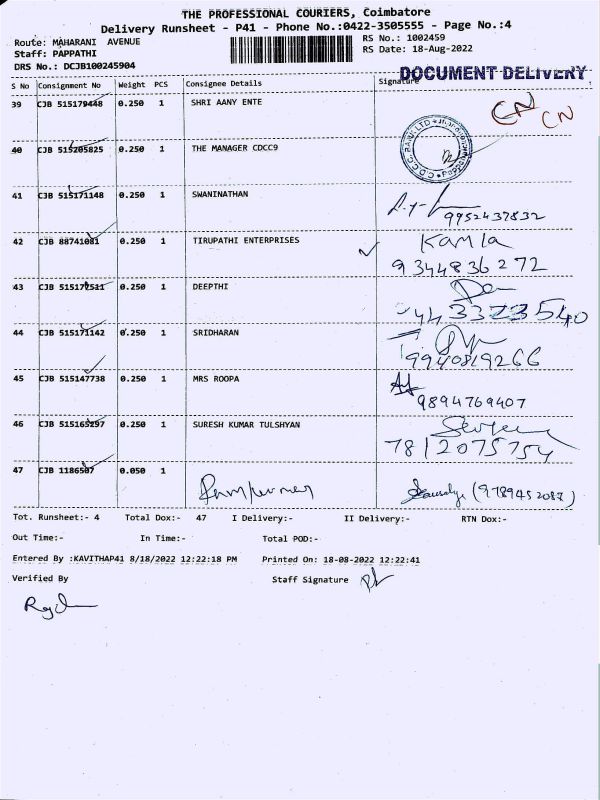 THE PROFESSIONAL COURIERS, Coimbatore
Delivery Runsheet - P41 - Phone No.:0422-3505555 - Page No.:4
Route: MAHARANI AVENUE
RS No.: 1002459
Staff: PAPPATHI
RS Date: 18-Aug-2022
DRS No.: DCJB100245904
DOCUMENT DELIVERY
S No Consignment No Weight PCS Consignee Details Signature
39 CJB 515179448 0.250 1 SHRI AANY ENTE CN CN
40 CJB 515205825 0.250 1 THE MANAGER CDCC9
41 CJB 515171148 0.250 1 SWANINATHAN
9952437832
42 CJB 88741081 0.250 1 TIRUPATHI ENTERPRISES Kamla
9344836272
43 CJB 515172511 0.250 1 DEEPTHI
44 CJB 515171142 0.250 1 SRIDHARAN
9940819266
45 CJB 515147738 0.250 1 MRS ROOPA
9894769407
46 CJB 515165297 0.250 1 SURESH KUMAR TULSHYAN
7812075754
47 CJB 1186507 0.050 1 (9789452087)
Tot. Runsheet:- 4 Total Dox:- 47 I Delivery:- II Delivery:- RTN Dox:-
Out Time:- In Time:- Total POD:-
Entered By :KAVITHAP41 8/18/2022 12:22:18 PM Printed On: 18-08-2022 12:22:41
Verified By Staff Signature